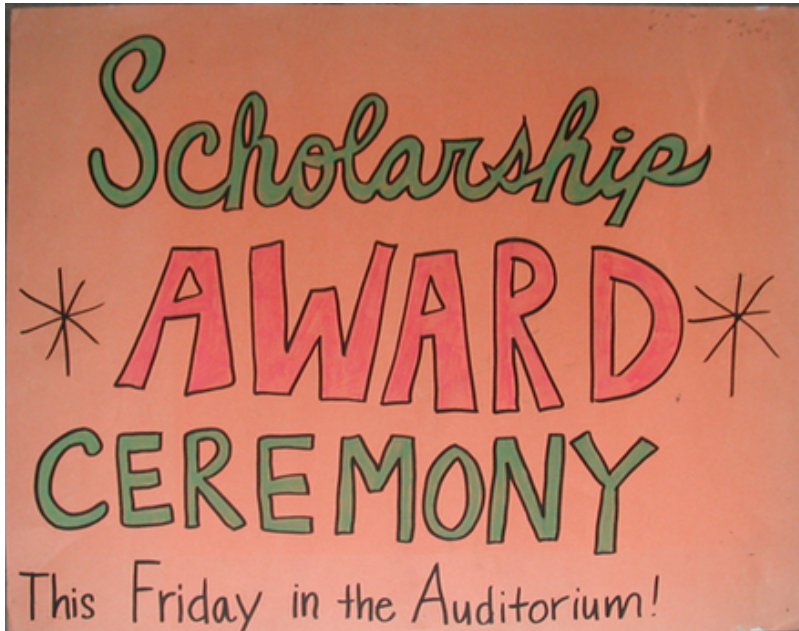 Scholarship
AWARD
CEREMONY
This Friday in the Auditorium!